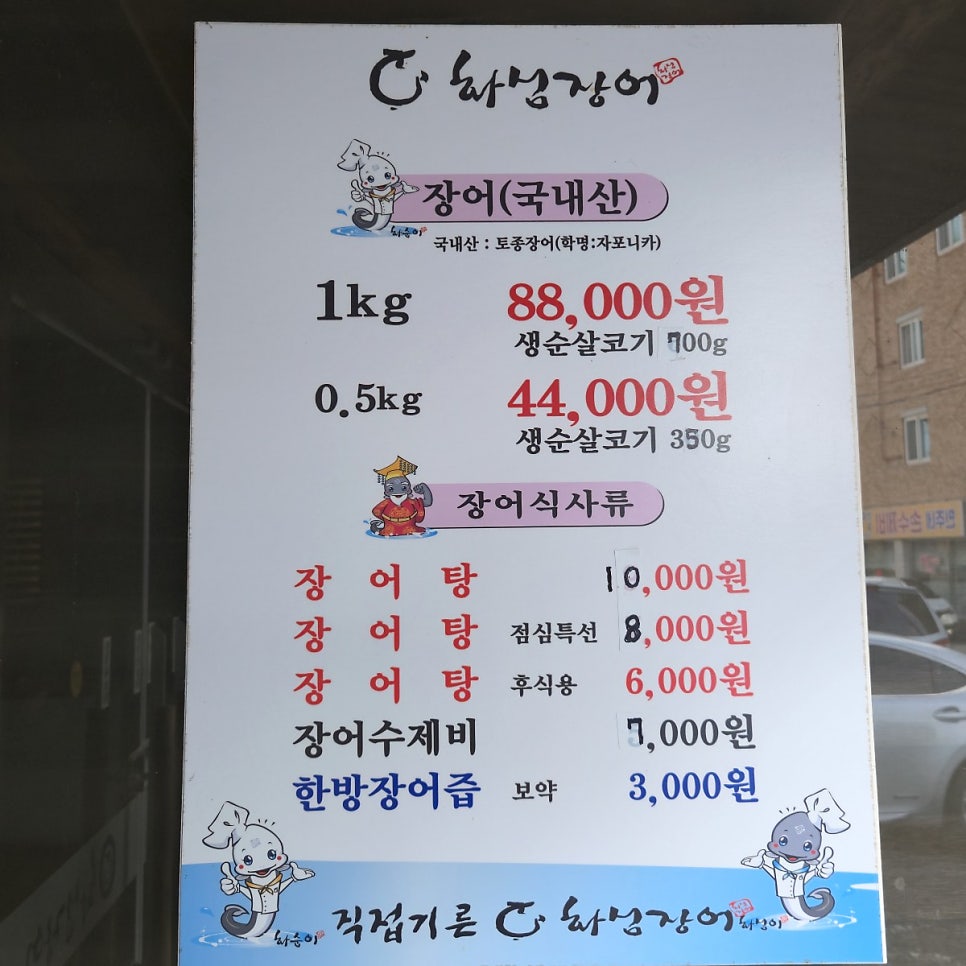 화넘장어
장어(국내산)
화순이
국내산 : 토종장어(학명:자포니카)
1kg 88,000원
생순살코기 700g
0.5kg 44,000원
생순살코기 350g
장어식사류
장 어 탕 10,000원
장 어 탕 점심특선 8,000원
장 어 탕 후식용 6,000원
장어수제비 7,000원
한방장어즙 보약 3,000원
손수제비
화순이 직접기른 화넘장어 화넘이